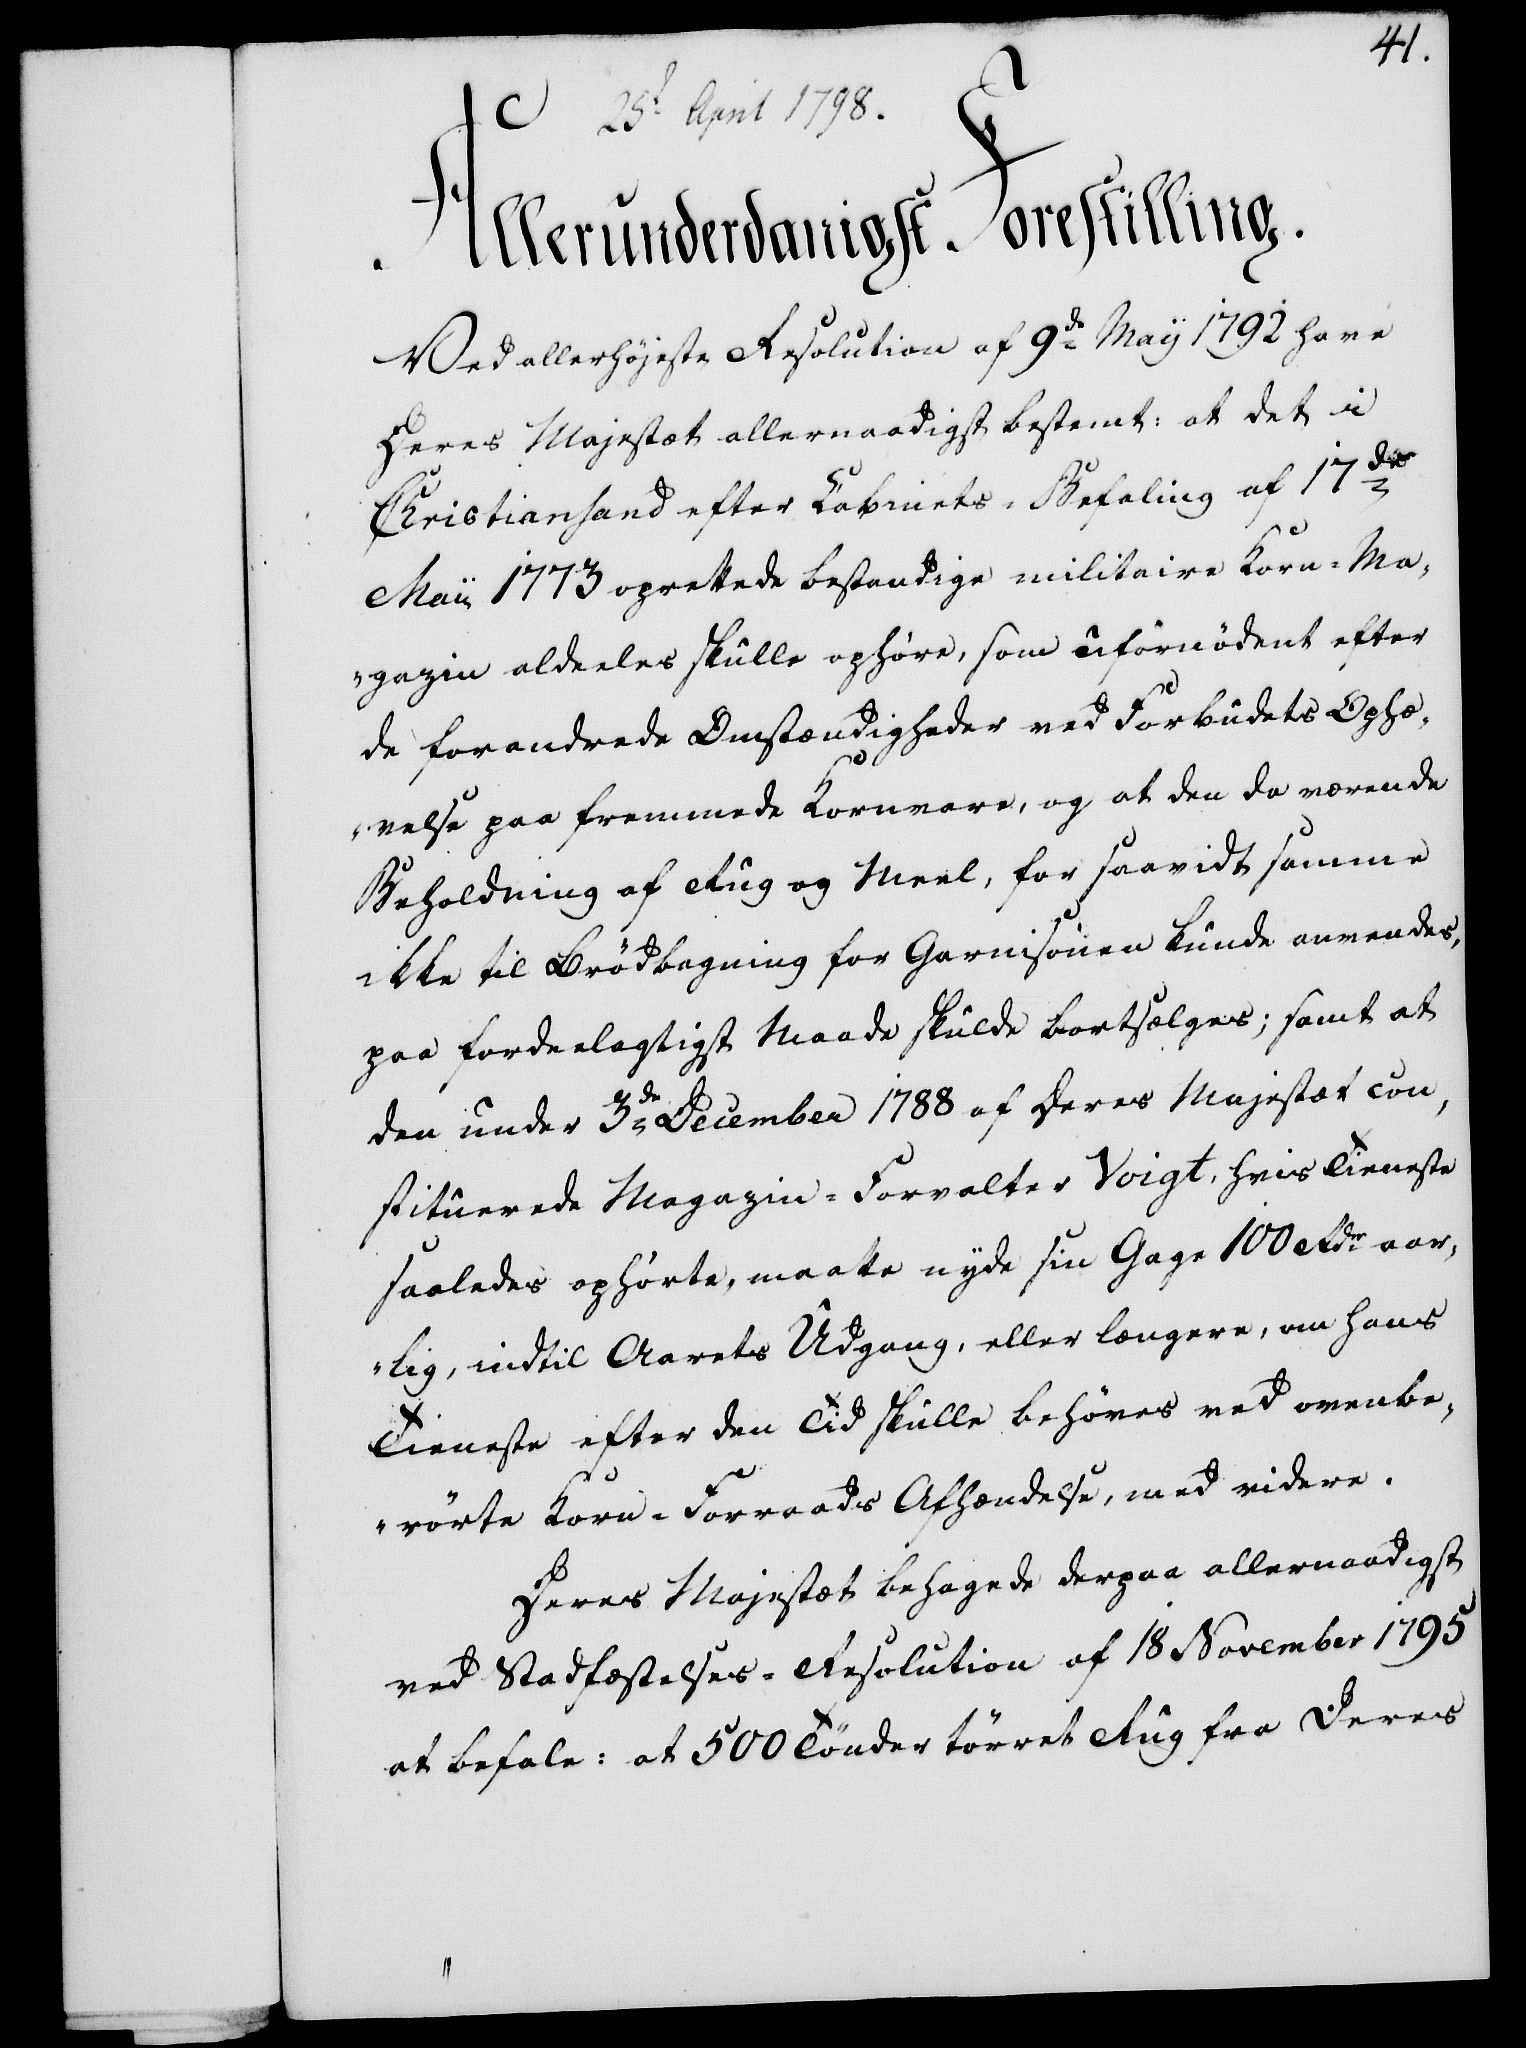 41.
25t April 1798.
Allerunderdanigst Forestilling.
Ved allerhöjeste Resolution af 9de Maÿ 1792 have
Deres Majestæt allernaadigst bestemt: at det i
Christiansand efter Cabinets-Befaling af 17de
Maii 1773 oprettede bestandige militaire Korn-Ma-
gazin aldeeles skulle ophöre, som ufornödent efter
de forandrede Omstændigheder ved Forbudets Ophæ-
velse paa fremmede Kornvare, og at den da værende
Beholdning af Rug og Meel, for saavidt samme
ikke til Brödbagning for Garnisonen kunde anvendes,
paa fordeelagtigst Maade skulde bortsælges; samt at
den under 3de December 1788 af Deres Majestæt con-
stituerede Magazin-Forvalter Voigt, hvis Tieneste
saaledes ophörte, maatte nyde sin Gage 100 Rdr aar-
lig, indtil Aarets Udgang, eller længere, om hans
Tieneste efter den Tid skulle behöves ved ovenbe-
rörte Korn-Forraads Afhændelse, med videre.
Deres Majestæt behagede derpaa allernaadigst
ved Stadfæstelses-Resolution af 18 November 1795
at befale: at 500 Tönder törret Rug fra Deres